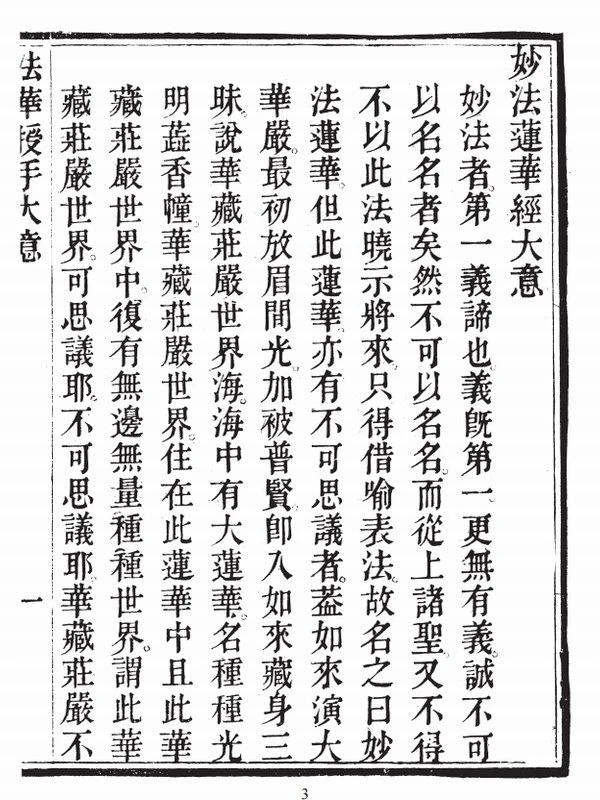 妙法蓮華經大意
妙法者。第一義諦也。義旣第一。更無有義。誠不可
以名名者矣。然不可以名名。而從上諸聖。又不得
不以此法曉示將來。只得借喻表法。故名之曰妙
法蓮華。但此蓮華。亦有不可思議者。葢如來演大
華嚴。最初放眉間光。加被普賢。卽入如來藏身三
昧。說華藏莊嚴世界海。海中有大蓮華。名種種光
明蘂香幢。華藏莊嚴世界。住在此蓮華中。且此華
藏莊嚴世界中。復有無邊無量種種世界。謂此華
藏莊嚴世界。可思議耶。不可思議耶。華藏莊嚴不
法華授手大意
一
3